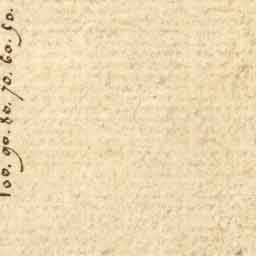 100. 90. 80. 70. 60. 50.